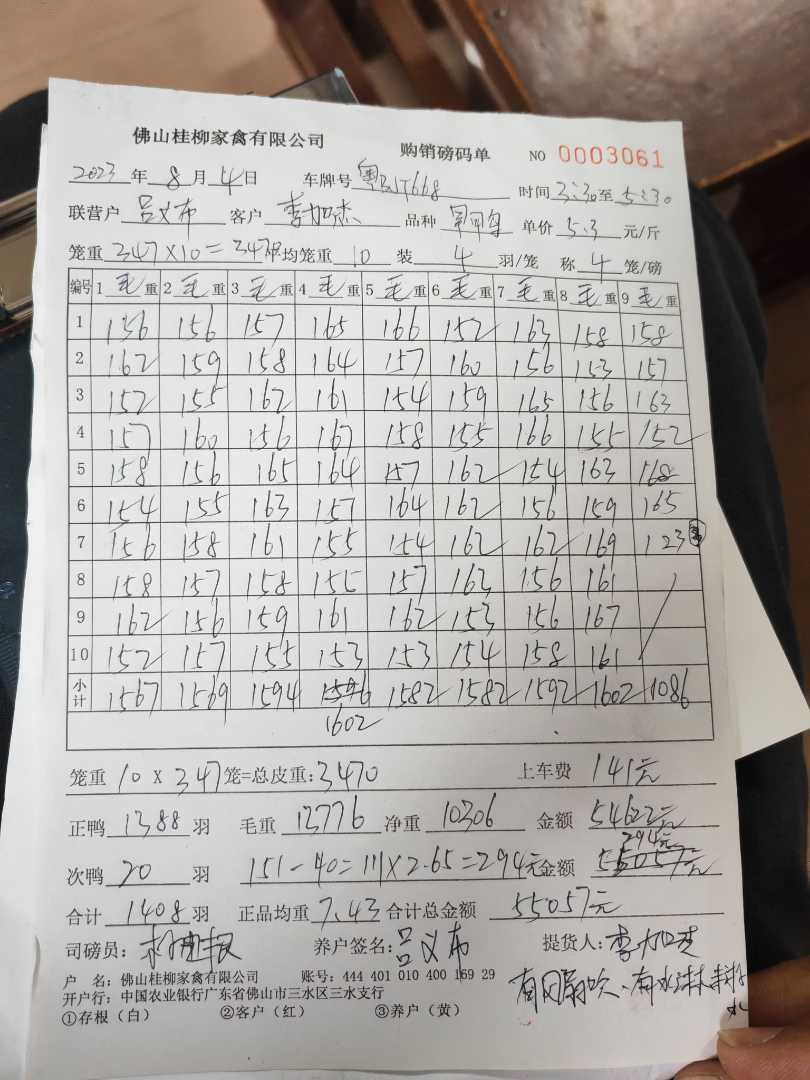 佛山桂柳家禽有限公司 购销磅码单 NO 0003061
2023 年 8 月 4 日 车牌号 时间 3:30 至 5:30
联营户 吕义布 客户 李加杰 品种 单价 5.3 元/斤
笼重 347×10= 347 平均笼重 10 装 4 羽/笼 称 4 笼/磅
编号 1 毛 重 2 毛 重 3 毛 重 4 毛 重 5 毛 重 6 毛 重 7 毛 重 8 毛 重 9 毛 重
1 156 156 157 165 166 152 163 158 158
2 162 159 158 164 157 160 156 153 157
3 152 155 162 161 154 159 165 156 163
4 157 160 156 167 158 155 166 155 152
5 158 156 165 164 157 162 154 163 168
6 154 155 163 157 164 162 156 159 165
7 156 158 161 155 154 162 162 169 123
8 158 157 158 155 157 163 156 161
9 162 156 159 161 162 153 156 167
10 152 157 155 153 153 154 158 161
小计 1567 1569 1594 1582 1582 1592 1602 1086
1602
笼重 10 × 347 笼=总皮重: 3470 上车费 141元
正鸭 1388 羽 毛重 13776 净重 10306 金额 54622元
294元
次鸭 20 羽 151-40=111×2.65=294元 金额 55057元
合计 1408 羽 正品均重 7.43 合计总金额 55057元
司磅员: 养户签名: 吕义布 提货人: 李加杰
户 名: 佛山桂柳家禽有限公司 账号: 444 401 010 400 169 29
开户行: 中国农业银行广东省佛山市三水区三水支行
有风扇吹、有水淋
①存根(白) ②客户(红) ③养户(黄)